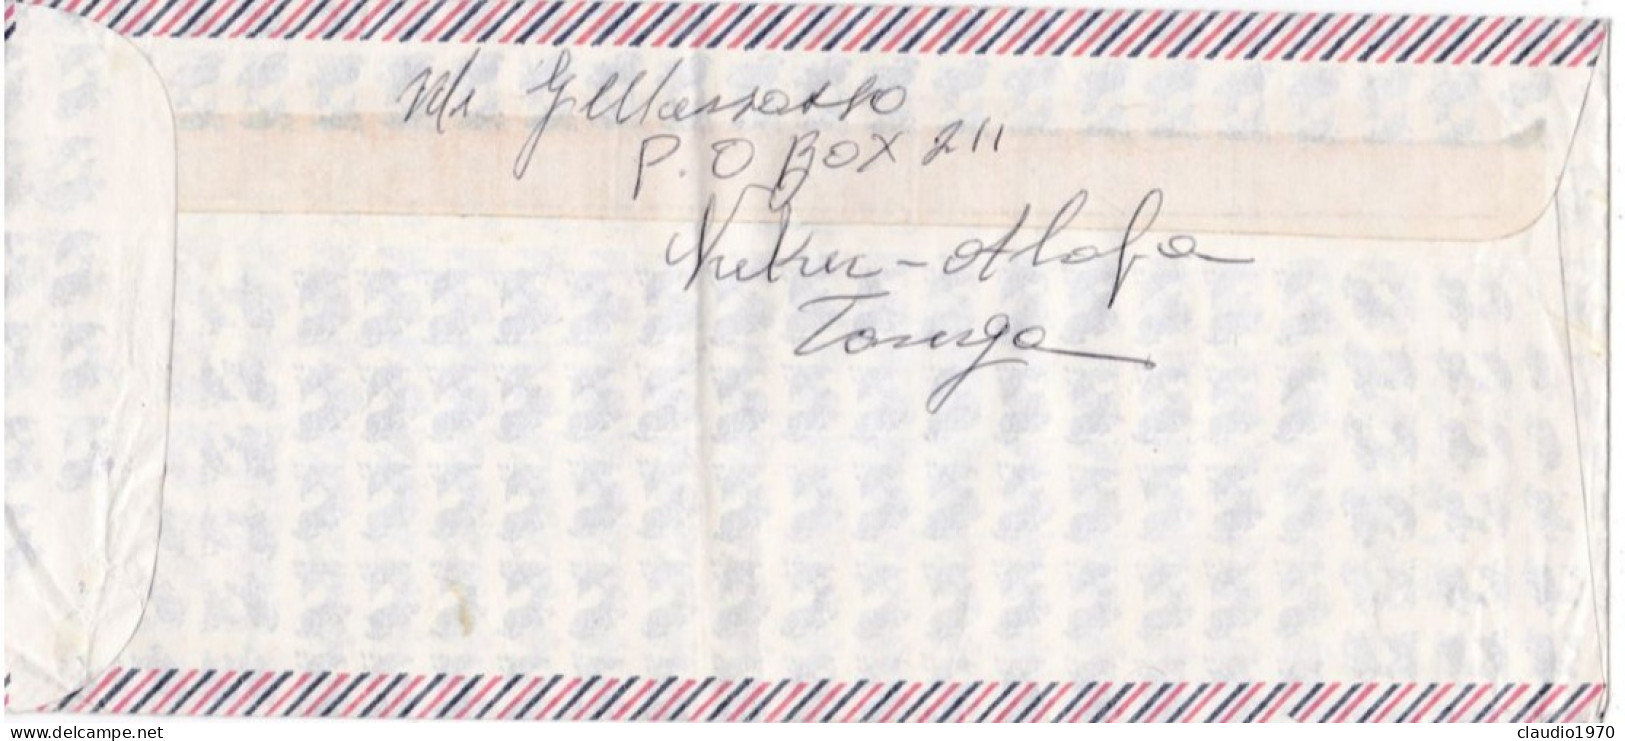 Mr G Massasso
P.O BOX 211
Nuku-Alofa
Tonga
delcampe.net
claudio1970